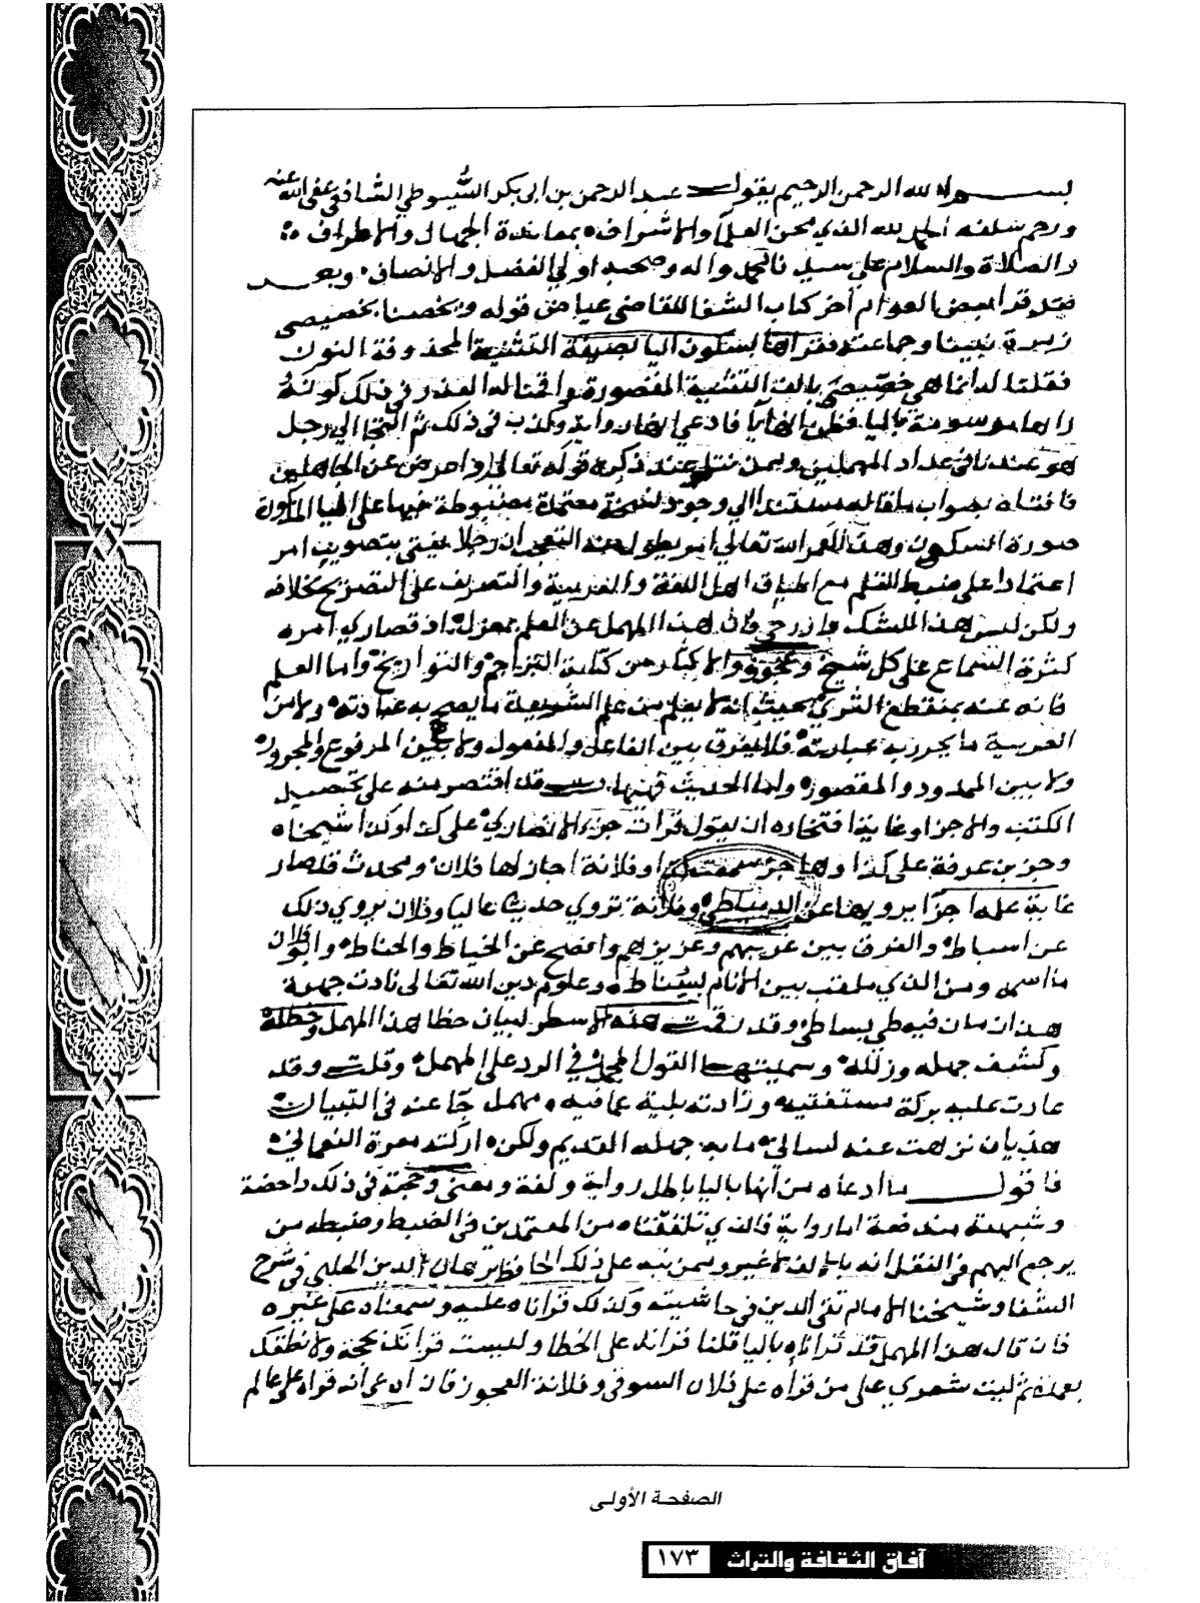 بسم الله الرحمن الرحيم يقول عبد الرحمن بن ابى بكر السيوطي الشافعي عفى الله عنه
ورحم سلفه الحمد لله الذي محن العلما والاشراف بمعاندة الجهال والاطراف
والصلاة والسلام على سيدنا محمد واله وصحبه اولي الفضل والانصاف وبعد
فقد قرأ بعض العوام آخر كتاب الشفا للقاضي عياض قوله ويخصنا بخصيصى
زمرة نبينا وجماعته فقراها بسكون اليا لصيغة التثنية المحذوفة النون
فقلنا له انما هي خصيصى بالف التثنية المقصورة واقمنا له العذر في ذلك كونه
راها مرسومة باليا فظن انها يا فادعى انها رواية وكذب فى ذلك ثم التجا الى رجل
هو عندنا فى عداد المهملين وممن نتلو عند ذكره قوله تعالى واعرض عن الجاهلين
فافتاه بصواب ما قاله مستندا الي وجود نسخة معتمدة مضبوطة فيها على اليا
صورة السكون وهذا لعمر الله تعالى امر يطول منه التعجب ان رجلا يفتي بتصويب امر
اعتمادا على ضبط القلم مع اطباق اهل اللغة والعربية والتصريف على التصريح بخلافه
ولكن ليس هذا فان هذا المهمل عن العلم بمعزل اذ قصاري امره
كثرة السماع على كل شيخ وعجوز والاكثار من كتابة التراجم والتواريخ واما العلم
فانه عنه بمنقطع الثرى بحيث انه لا يعلم من علم الشريعة ما يصح به عبادته ولا من
العربية ما يحرر به عبارته فلا يفرق بين الفاعل والمفعول ولا بين المرفوع والمجرور
ولا بين الممدود والمقصور واما الحديث فقد اقتصر منه على تحصيل
الكتب والاجزا وغاية افتخاره ان يقول قرات جزء الانصاري على كذا وكذا شيخا
وجزء بن عرفة على كذا سمعت او فلانة اجاز لها فلان ومحدث قد صار
غاية علمه اجزا يرويها عن الدمياطي وفلانة تروي حديثا عاليا وفلان يروي ذلك
عن اسباط والفرق بين غريبهم وعزيزهم وافصح عن الخياط والحناط وابو فلان
ما اسمه ومن الذي ملقب بين الانام بسناط وعلوم دين الله تعالى نادت جهرة
هذا زمان فيه طي بساطي وقد رقمت هذه الاسطر لبيان خطا هذا المهمل وخطله
وكشف جهله وزلله وسميتها القول المجمل في الرد على المهمل وقلت وقد
عادت عليه بركة مستفتيه وزادته بلية عما فيه ومهمل جا عنه فى التبيان
هذيان نزهت عنه لسانى ما به جهله القديم ولكن ادركته معرة النعماني
فاقول ما ادعاه من انها باليا باطل رواية ولغة ومعنى وحجته فى ذلك داحضة
وشبهته مندفعة اما رواية فالذي تلقفناه من المعتمدين فى الضبط وضبطه من
يرجع اليهم فى النقل انه بالالف لا غير وممن نبه على ذلك الحافظ برهان الدين الحلبي فى شرح
الشفا وشيخنا الامام تقى الدين فى حاشيته وكذلك قراناه عليه وسمعناه على غيره
فان قال هذا المهمل قد قراناه باليا قلنا قراته على الخطا وليست قراتك بحجة ولا نطقك
بعمدة ثم ليت شعري على من قرأه على فلان السوقى وفلانة العجوز فان ادعى انه قراه على عالم
الصفحة الأولى
آفاق الثقافة والتراث ١٧٣